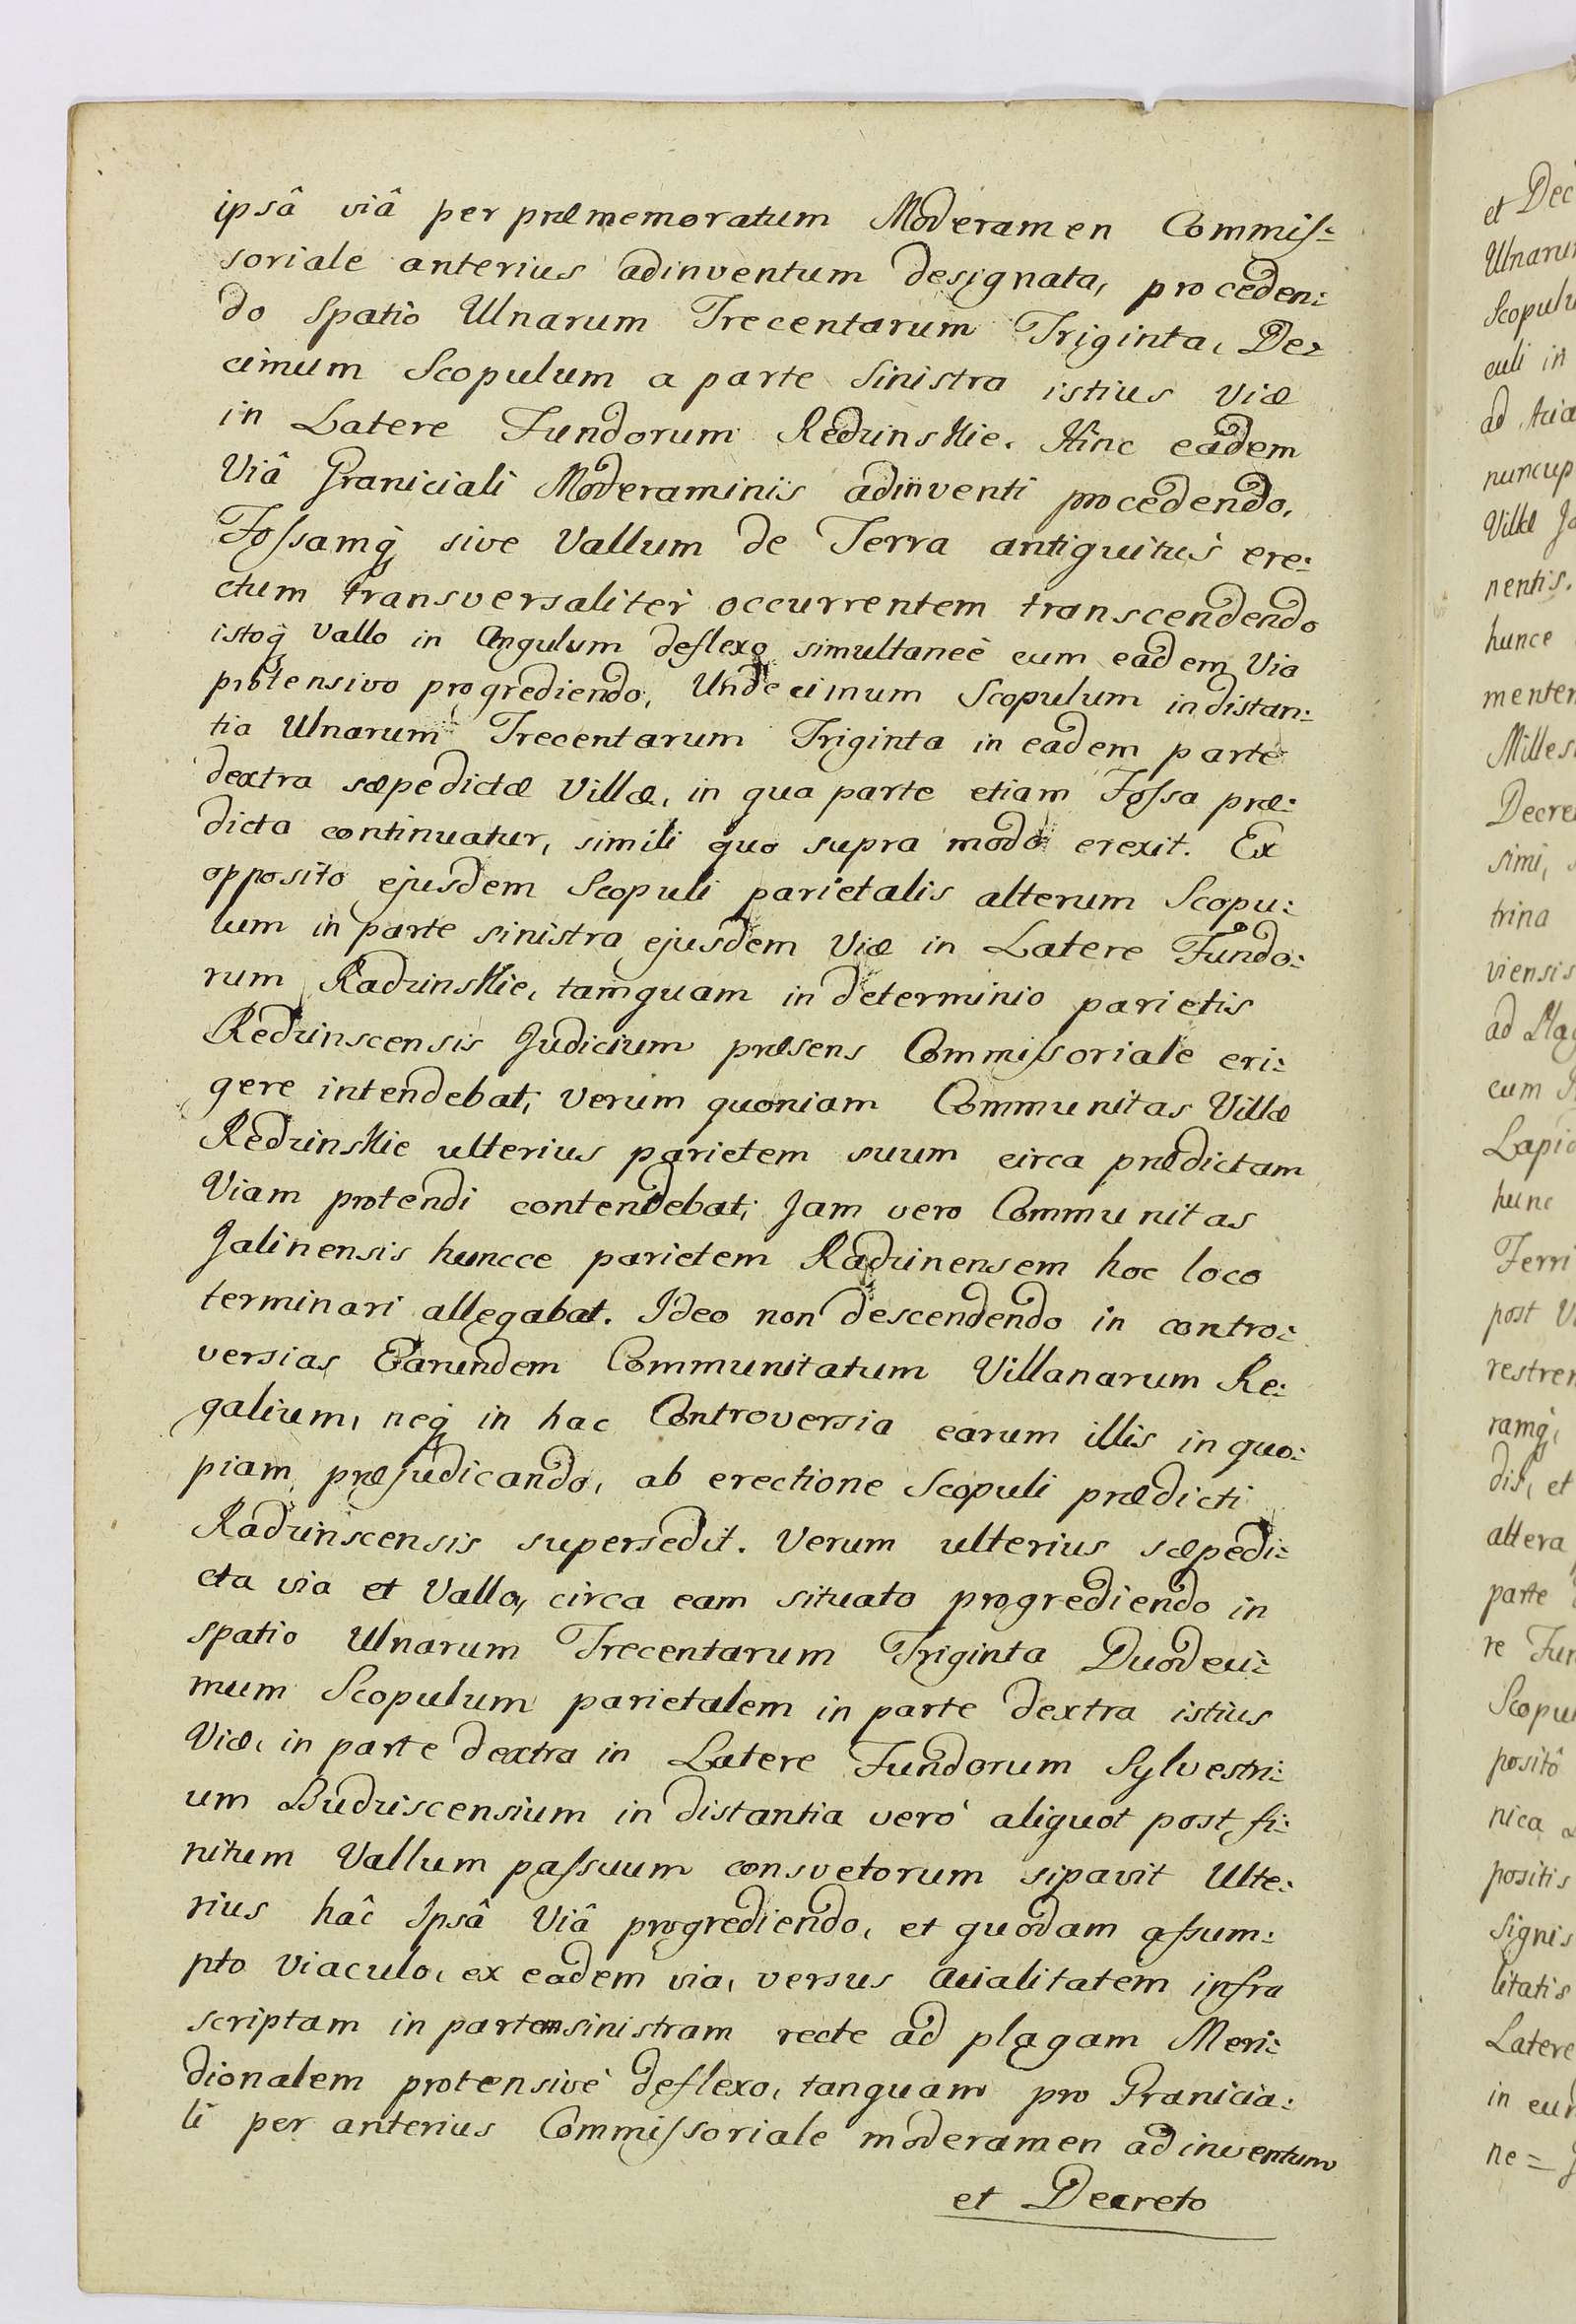 ipsâ viâ per præmemoratum Moderamen Commis:
soriale anterius adinventum designata, proceden:
do Spatio Ulnarum Trecentarum Triginta, De:
cimum Scopulum a parte Sinistra istius viæ
in Latere Fundorum Redzinskie. Hinc eadem
Viâ Graniciali Moderaminis adinventi procedendo,
Fossamq̀ sive Vallum de Terra antiquitus ere:
ctum transversaliter occurrentem transcendendo
istoq̀ Vallo in Angulum deflexo simultaneè cum eadem Via
protensivo progrediendo, Undecimum Scopulum in distan:
tia Ulnarum Trecentarum Triginta in eadem parte
dextra sæpedictæ Villæ, in qua parte etiam Fossa præ:
dicta continuatur, simili quo supra modo erexit. Ex
opposito ejusdem Scopuli parietalis alterum Scopu:
lum in parte sinistra ejusdem Viæ in Latere Fundo:
rum Radzinskie, tamquam in determinio parietis
Redzinscensis Judicium præsens Commissoriale eri:
gere intendebat; verum quoniam Communitas Villæ
Redzinskie ulterius parietem suum circa prædictam
Viam protendi contendebat; Jam vero Communitas
Jalinensis huncce parietem Radzinensem hoc loco
terminari allegabat. Ideo non descendendo in contro:
versias Earundem Communitatum Villanarum Re:
galium, neq̀ in hac Controversia earum illis in quo:
piam præjudicando, ab erectione Scopuli prædicti
Radzinscensis supersedit. Verum ulterius sæpedi:
cta via et Vallo, circa eam situato progrediendo in
spatio Ulnarum Trecentarum Triginta Duodeci:
mum Scopulum parietalem in parte dextra istius
Viæ, in parte dextra in Latere Fundorum Sylvestri:
um Budziscensium in distantia verò aliquot post fi:
nitum Vallum passuum consvetorum sipavit Ulte:
rius hâc Ipsâ Viâ progrediendo, et quodam assum:
pto viaculo, ex eadem via, versus Acialitatem infra
scriptam in partem sinistram recte ad plagam Meri:
dionalem protensivè deflexo, tanquam pro Granicia:
li per anterius Commissoriale moderamen adinventum
et Decreto
et Dec
Ulnarum
Scopulu
culi in
ad Acia
nuncup
Villæ Ja
nentis.
hunce
menten
Milles
Decre
simi,
trina
viensis
ad Plag
cum
Lapid
hunc
Ferri
post
restren
ramq̀,
dis, et
altera
parte
re Fun
Scopu
positô
nica
positis
signis
litatis
Latere
in eun
ne =